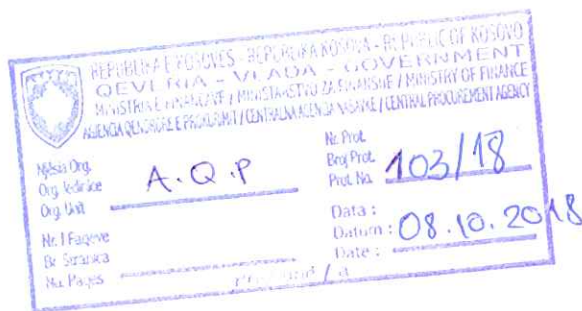 REPUBLIKA E KOSOVËS - REPUBLIKA KOSOVA - REPUBLIC OF KOSOVO
QEVERIA - VLADA - GOVERNMENT
MINISTRIA E FINANCAVE / MINISTARSTVO ZA FINANSIJE / MINISTRY OF FINANCE
AGJENCIA QENDRORE E PROKURIMIT / CENTRALNA AGENCIJA NABAVKE / CENTRAL PROCUREMENT AGENCY
Njësia Org.
Org. Jedinice
Org. Unit
A.Q.P
Nr. Prot.
Broj Prot.
Prot. No.
103/18
Nr. i Faqeve
Br. Stranica
No. Pages
Data :
Datum :
Date :
08.10.2018